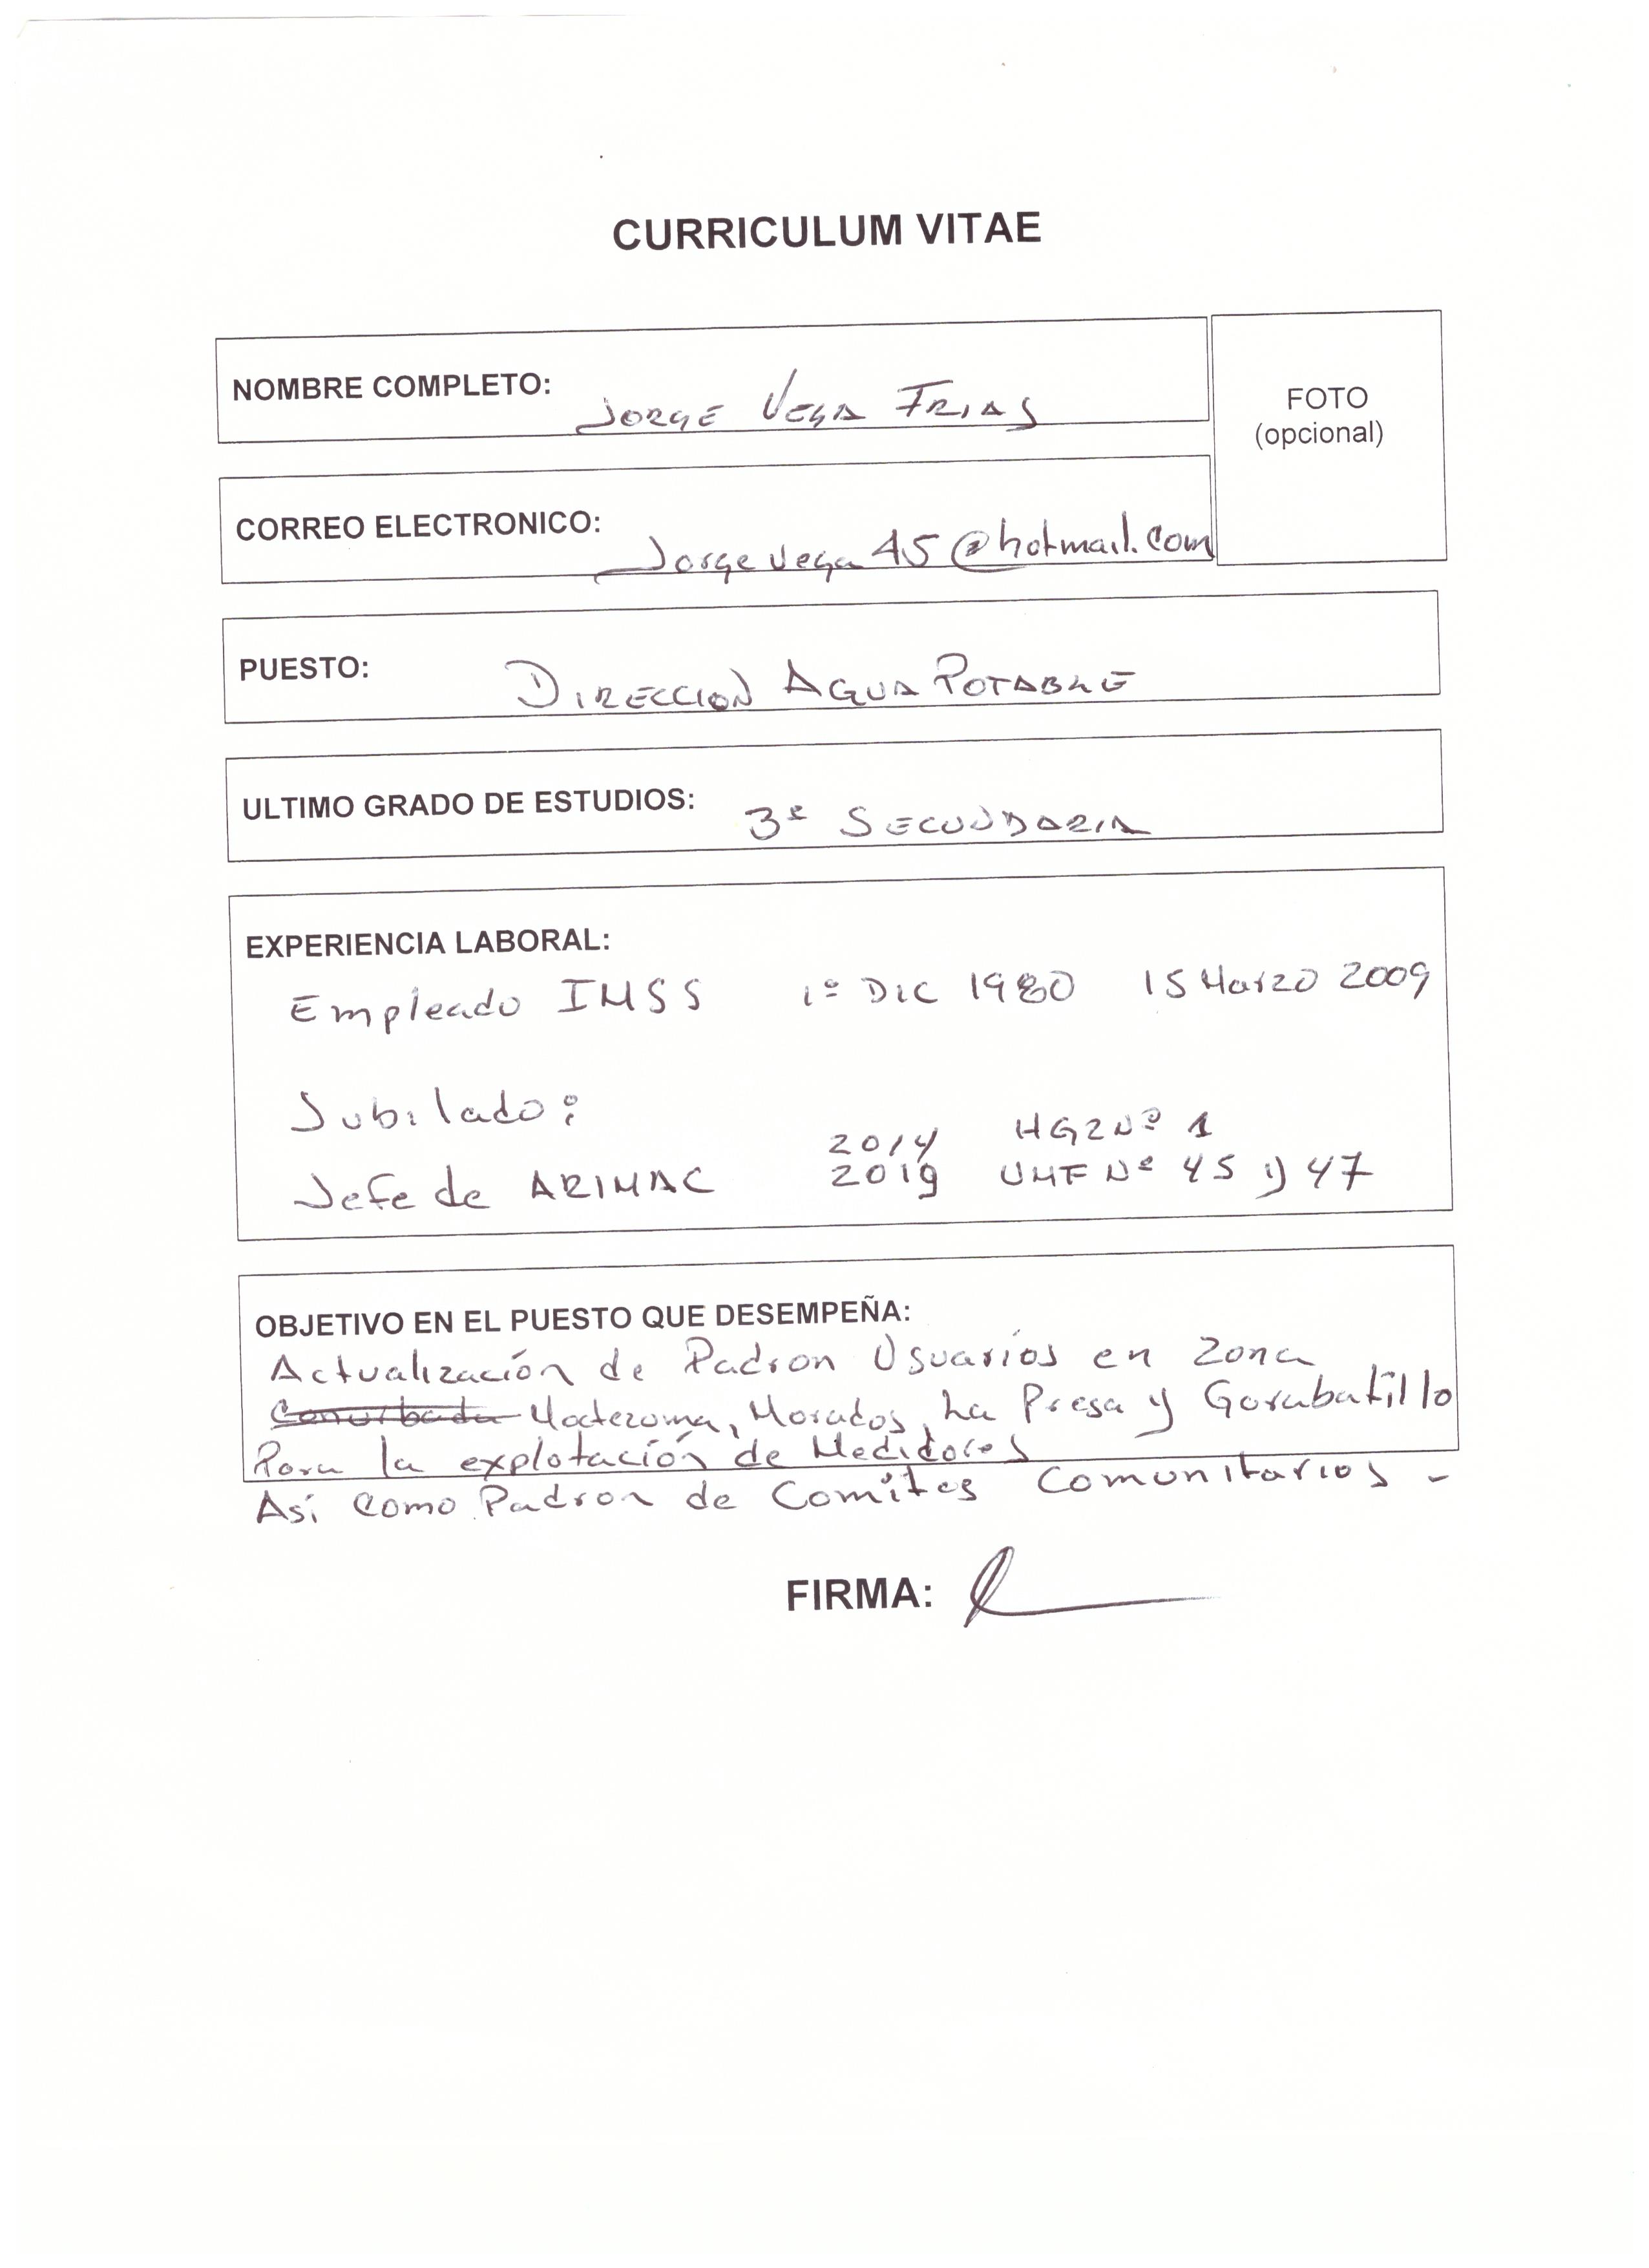 CURRICULUM VITAE
NOMBRE COMPLETO: JORGE VEGA FRIAS
FOTO
(opcional)
CORREO ELECTRONICO: Jorgevega45@hotmail.com
PUESTO: DIRECCION AGUA POTABLE
ULTIMO GRADO DE ESTUDIOS: 3º SECUNDARIA
EXPERIENCIA LABORAL:
Empleado IMSS 1º DIC 1980 15 Marzo 2009
Jubilado:
2014 HGZ Nº 1
Jefe de ARIMAC 2019 UMF Nº 45 y 47
OBJETIVO EN EL PUESTO QUE DESEMPEÑA:
Actualización de Padron Usuarios en Zona
Conurbada Moctezuma, Morados, La Presa y Garabatillo
Para la explotación de Medidores
Así como Padron de Comités Comunitarios -
FIRMA: